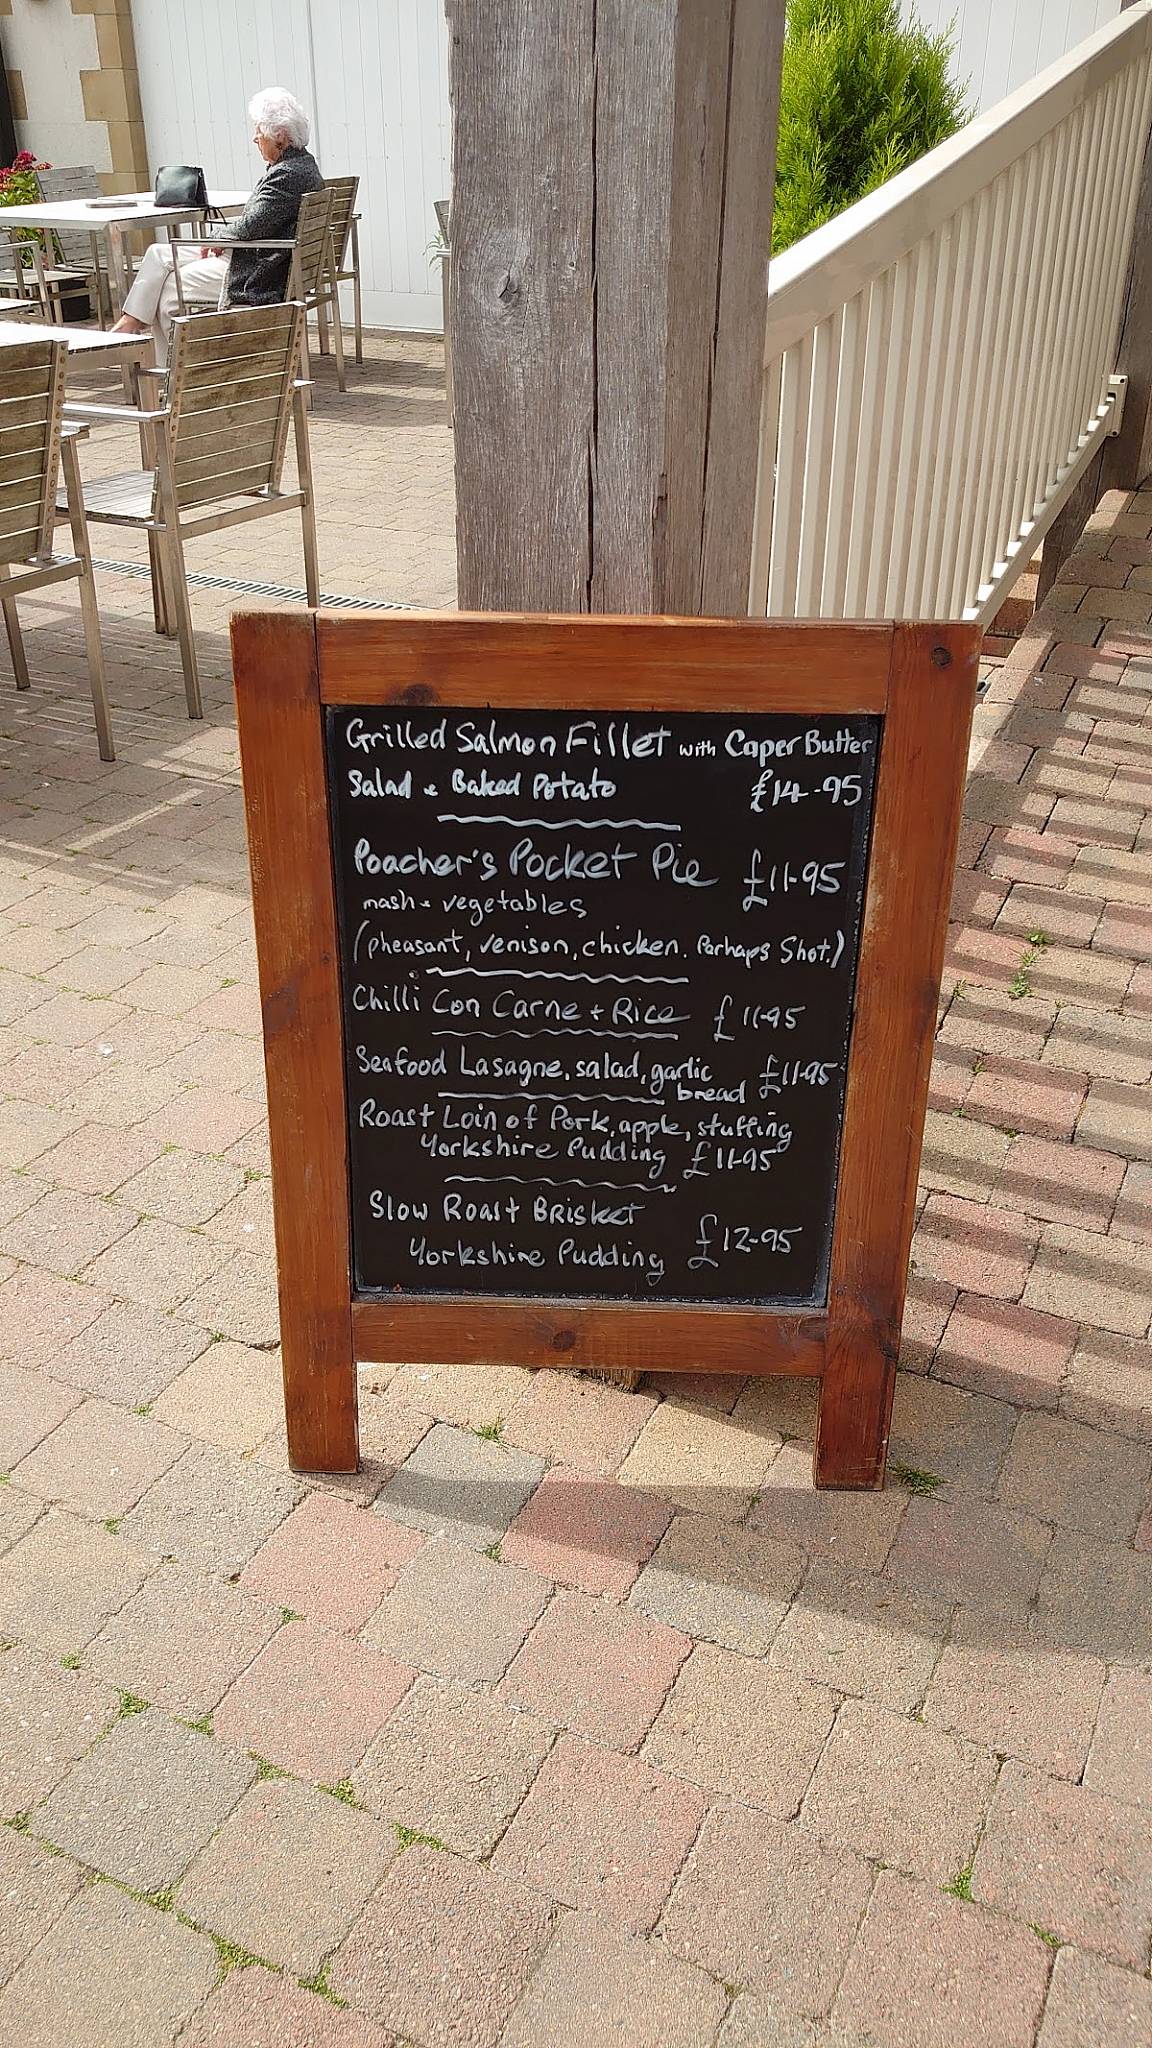 Grilled Salmon Fillet with Caper Butter
Salad & Baked Potato £14-95
Poacher's Pocket Pie £11-95
mash & vegetables
(pheasant, venison, chicken. Perhaps Shot.)
Chilli Con Carne + Rice £11-95
Seafood Lasagne, salad, garlic bread £11-95
Roast Loin of Pork, apple, stuffing
Yorkshire Pudding £11-95
Slow Roast Brisket
Yorkshire Pudding £12-95